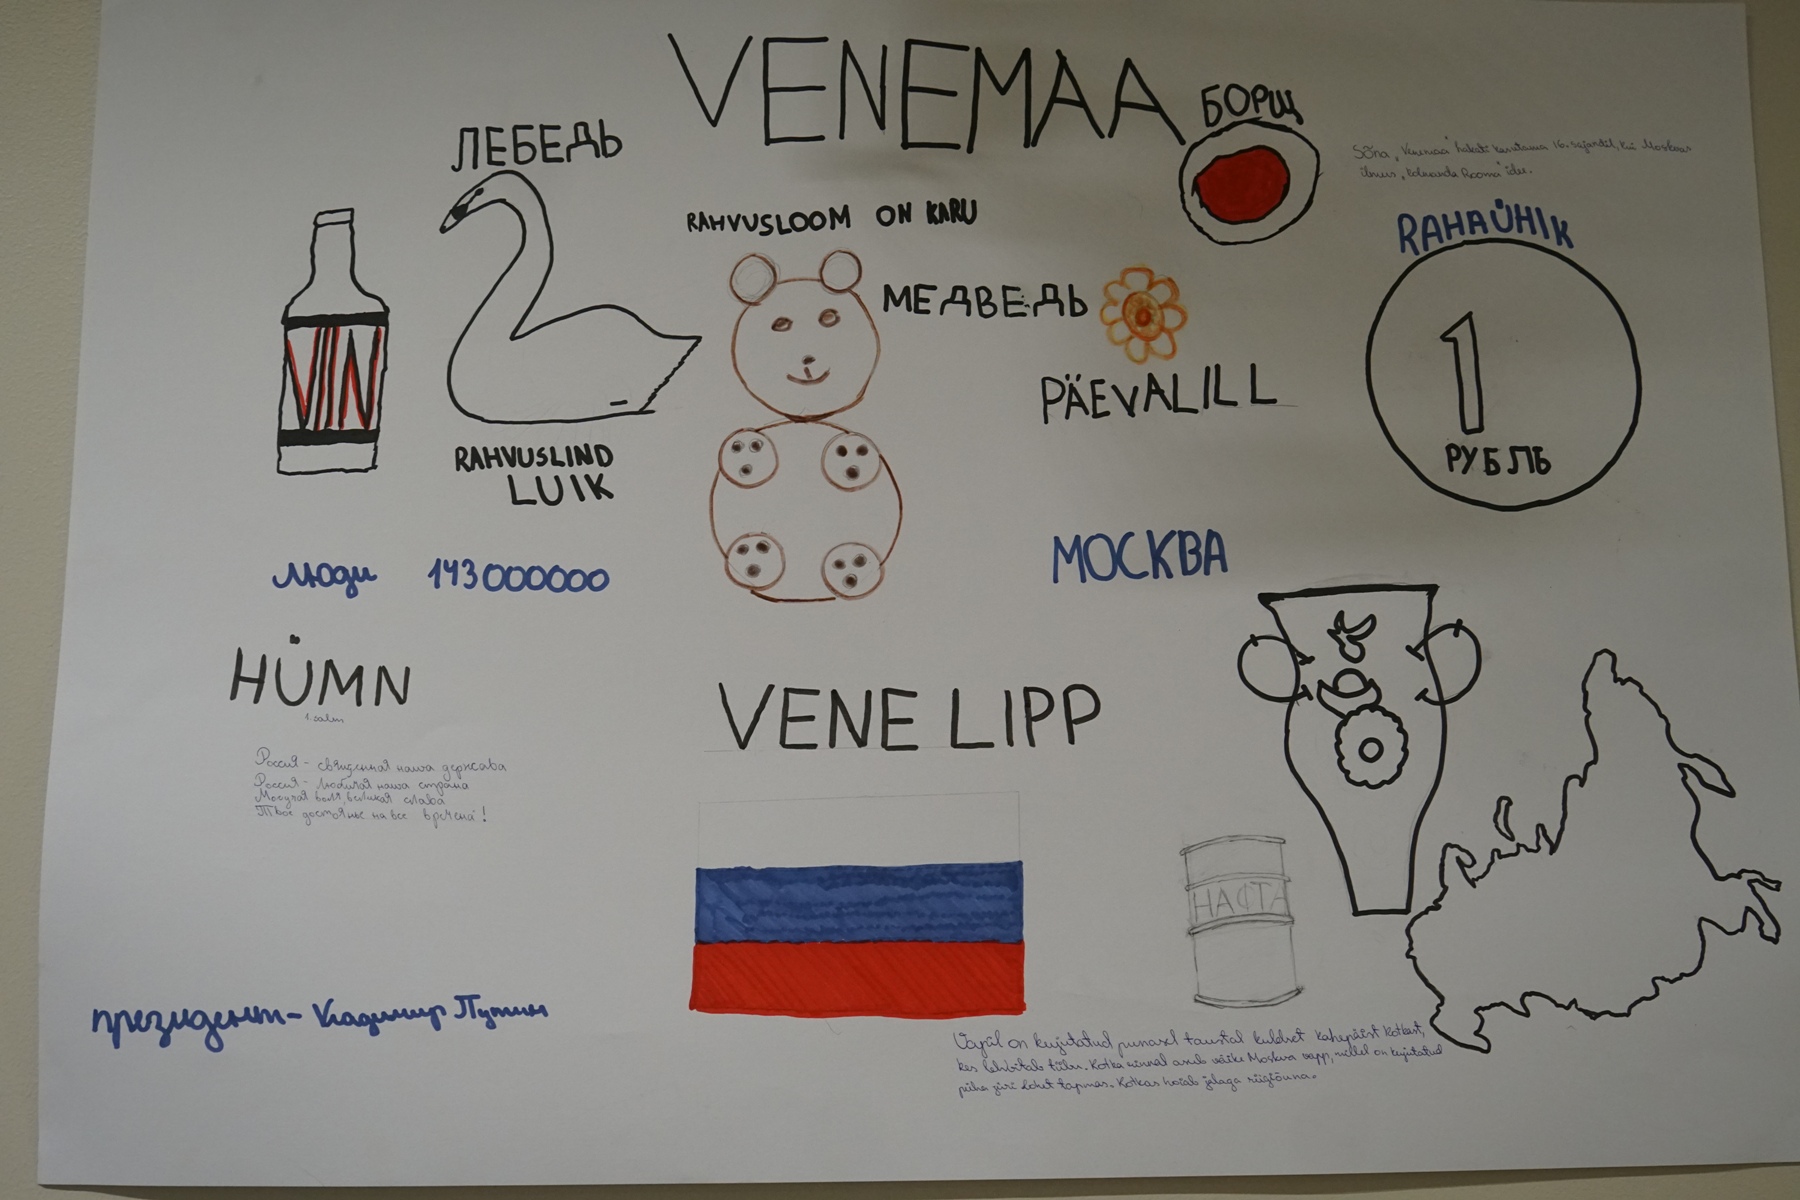 VENEMAA
БОРЩ
ЛЕБЕДЬ
Sõna "Venemaa" hakati kasutama 16. sajandil, kui Moskvas
ilmus idee.
RAHVUSLOOM ON KARU
RAHAÜHIK
VIIN
МЕДВЕДЬ
PÄEVALILL
1
РУБЛЬ
RAHVUSLIND
LUIK
МОСКВА
люди 143000000
HÜMN
1. salm
Россия - священная наша держава
Россия - любимая наша страна
Могучая воля, великая слава
Твоё достоянье на все времена!
VENE LIPP
НАФТА
президент - Владимир Путин
Vapil on kujutatud punasel taustal kuldset kahepäist kotkast,
kes lehvitab tiibu. Kotka rinnal asub väike Moskva vapp, millel on kujutatud
püha Jüri lohet tapmas. Kotkas hoiab jalaga riigiõuna.